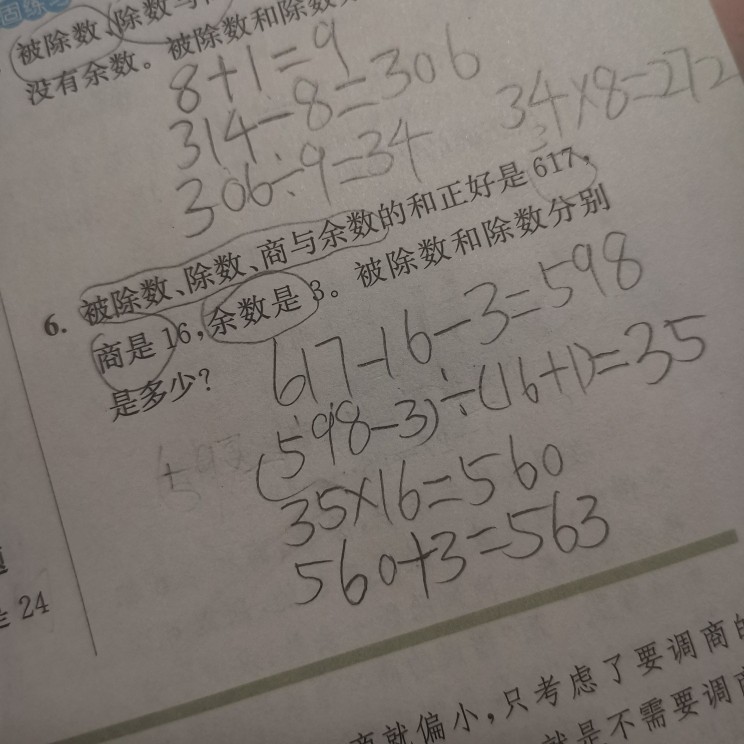 固练
被除数、除数与
没有余数。被除数和除数
8+1=9
314-8=306
34×8=272
306÷9=34
6. 被除数、除数、商与余数的和正好是617,
商是16,余数是3。被除数和除数分别
是多少?
617-16-3=598
(598-3)÷(16+1)=35
35×16=560
560+3=563
24
商就偏小,只考虑了要调商的
就是不需要调商